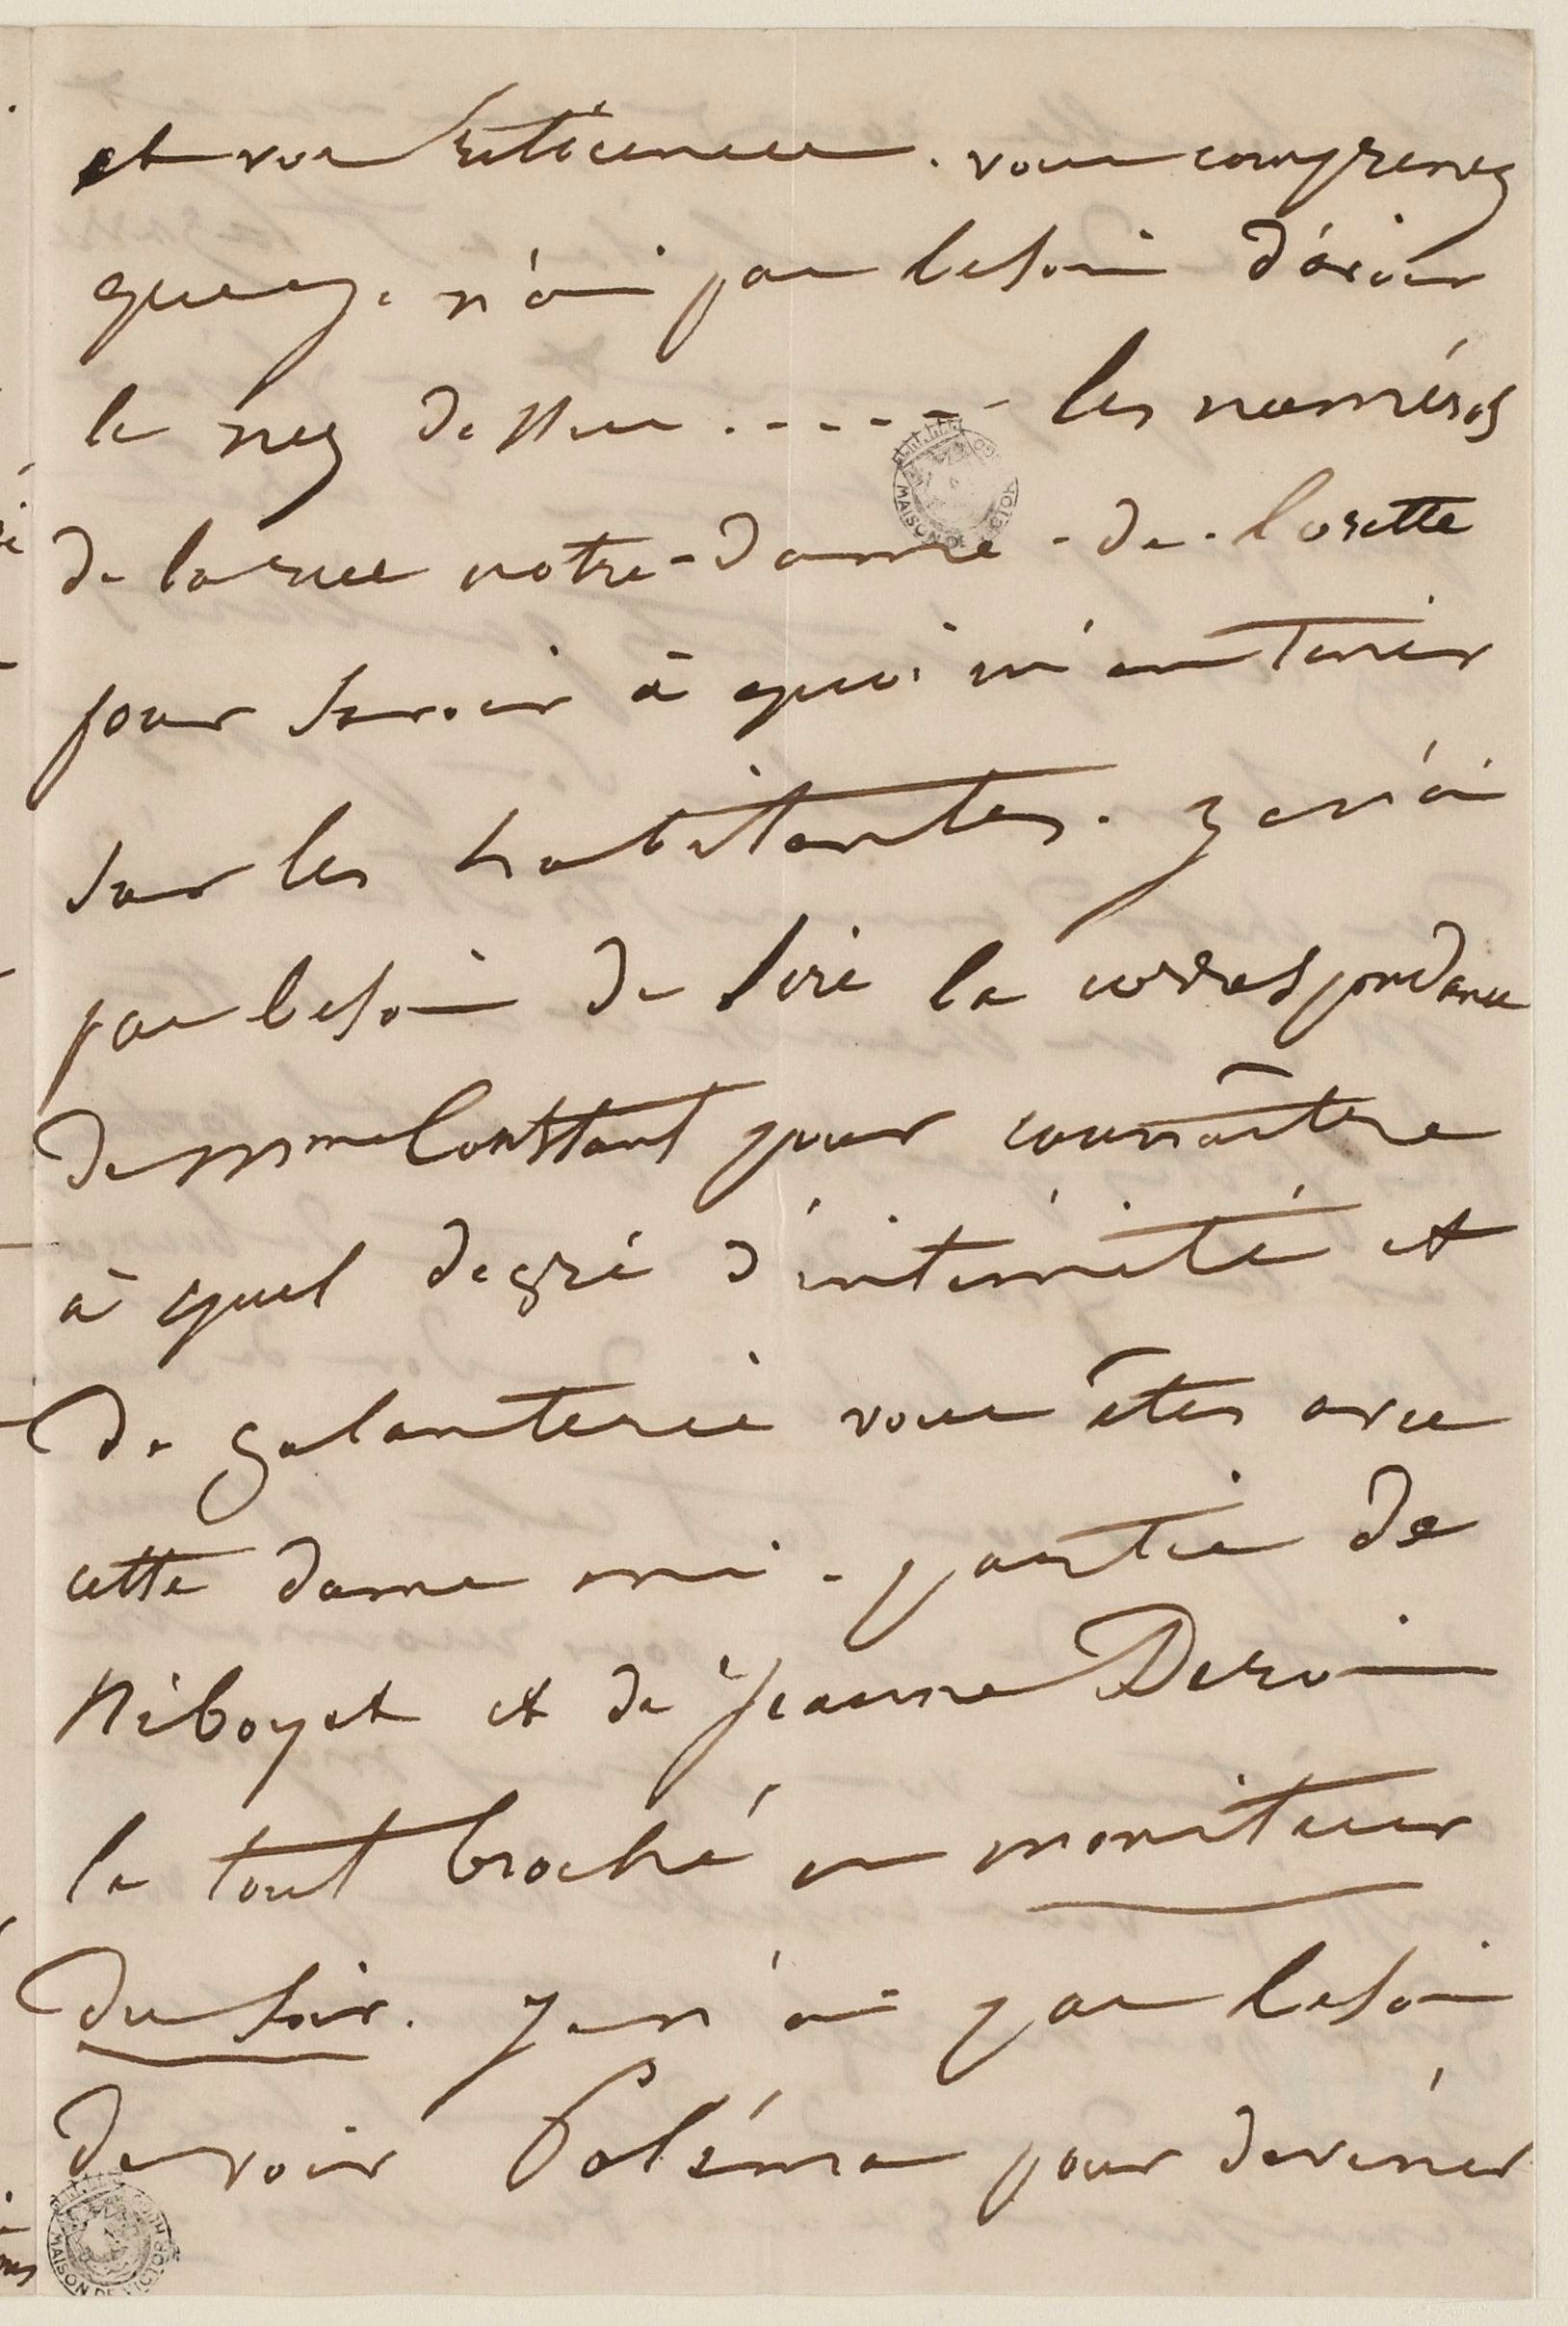 et vos réticences. vous comprenez
que je n'ai pas besoin d'avoir
le nez dessus . - - - - - les numéros
de la rue notre-dame-de-lorette
pour savoir à quoi m'en tenir
sur les habitantes. Je n'ai
pas besoin de lire la correspondance
de Mme Constant pour connaître
à quel degré d'intimité et
de galanterie vous êtes avec
cette dame mi-partie de
Niboyet et de Jeanne Deroin
le tout broché en moniteur
du soir. Je n'ai pas besoin
de voir pour deviner
MAISON DE VICTOR